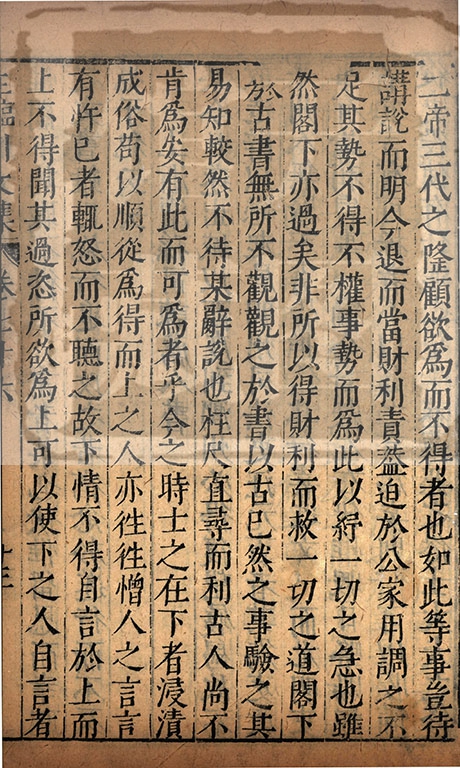 二帝三代之隆顧欲爲而不得者也如此等事豈待
講說而明今退而當財利責蓋迫於公家用調之不
足其勢不得不權事勢而爲此以紓一切之急也雖
然閣下亦過矣非所以得財利而救一切之道閣下
於古書無所不觀觀之於書以古已然之事驗之其
易知較然不待某辭說也枉尺直尋而利古人尚不
肯爲安有此而可爲者乎今之時士之在下者浸漬
成俗苟以順從爲得而上之人亦徃徃憎人之言言
有忤已者輒怒而不聽之故下情不得自言於上而
上不得聞其過恣所欲爲上可以使下之人自言者
王臨川文集 卷七十六 十三